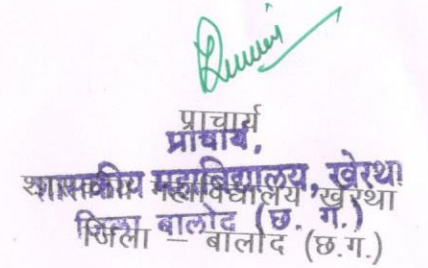 प्राचार्य
प्राचार्य,
शासकीय महाविद्यालय, खेरथा
शासकीय महाविद्यालय खेरथा
जिला बालोद (छ. ग.)
जिला – बालोद (छ.ग.)